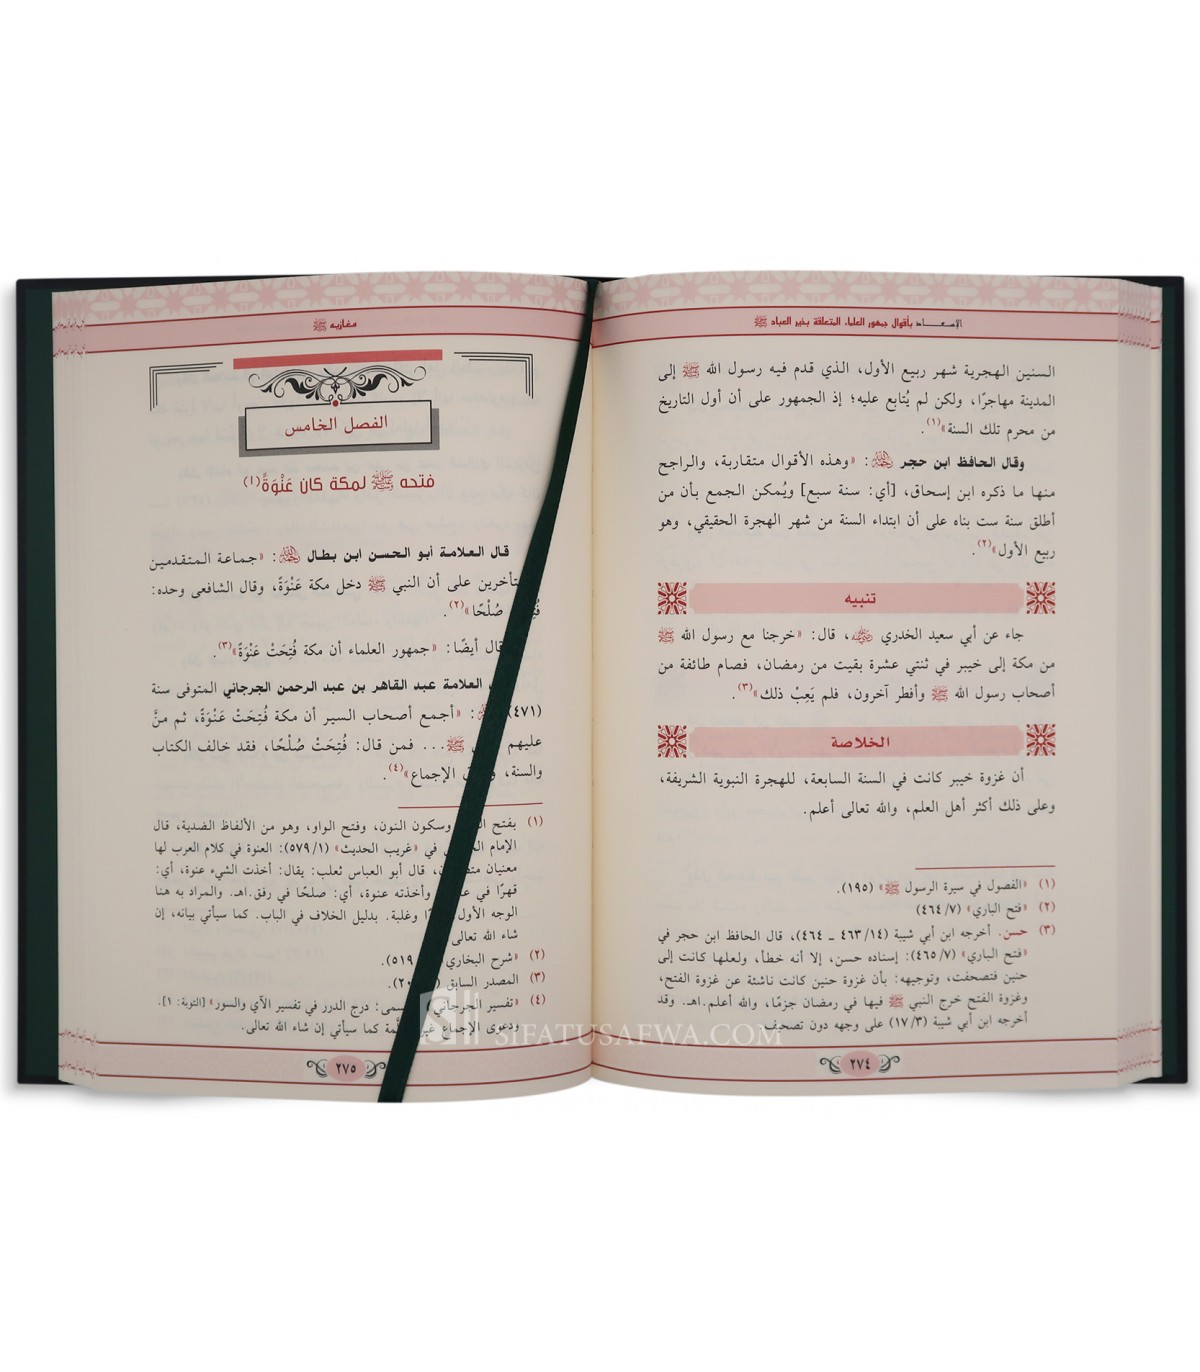 الإسعاد بأقوال جمهور العلماء المتعلقة بخير العباد ﷺ
السنين الهجرية شهر ربيع الأول، الذي قدم فيه رسول الله ﷺ إلى
المدينة مهاجرًا، ولكن لم يُتابع عليه؛ إذ الجمهور على أن أول التاريخ
من محرم تلك السنة»(١).
وقال الحافظ ابن حجر رحمه الله: «وهذه الأقوال متقاربة، والراجح
منها ما ذكره ابن إسحاق، [أي: سنة سبع] ويُمكن الجمع بأن من
أطلق سنة ست بناه على أن ابتداء السنة من شهر الهجرة الحقيقي، وهو
ربيع الأول»(٢).
تنبيه
جاء عن أبي سعيد الخدري رضي الله عنه، قال: «خرجنا مع رسول الله ﷺ
من مكة إلى خيبر في ثنتي عشرة بقيت من رمضان، فصام طائفة من
أصحاب رسول الله ﷺ وأفطر آخرون، فلم يَعِبْ ذلك»(٣).
الخلاصة
أن غزوة خيبر كانت في السنة السابعة، للهجرة النبوية الشريفة،
وعلى ذلك أكثر أهل العلم، والله تعالى أعلم.
(١) «الفصول في سيرة الرسول ﷺ» (١٩٥).
(٢) «فتح الباري» (٤٦٤/٧)
(٣) حسن. أخرجه ابن أبي شيبة (٤٦٣/١٤ ـ ٤٦٤)، قال الحافظ ابن حجر في
«فتح الباري» (٤٦٥/٧): إسناده حسن، إلا أنه خطأ، ولعلها كانت إلى
حنين فتصحفت، وتوجيهه: بأن غزوة حنين كانت ناشئة عن غزوة الفتح،
وغزوة الفتح خرج النبي ﷺ فيها في رمضان جزمًا، والله أعلم.اهـ. وقد
أخرجه ابن أبي شيبة (١٧/٣) على وجهه دون تصحيف.
٢٧٤
مغازيه ﷺ
الفصل الخامس
فتحه ﷺ لمكة كان عَنْوَةً(١)
قال العلامة أبو الحسن ابن بطال رحمه الله: «جماعة المتقدمين
تأخرين على أن النبي ﷺ دخل مكة عَنْوَةً، وقال الشافعي وحده:
صُلْحًا»(٢).
قال أيضًا: «جمهور العلماء أن مكة فُتِحَتْ عَنْوَةً»(٣).
العلامة عبد القاهر بن عبد الرحمن الجرجاني المتوفى سنة
(٤٧١): «أجمع أصحاب السير أن مكة فُتِحَتْ عَنْوَةً، ثم منَّ
عليهم ﷺ... فمن قال: فُتِحَتْ صُلْحًا، فقد خالف الكتاب
والسنة، الإجماع»(٤).
(١) بفتح وسكون النون، وفتح الواو، وهو من الألفاظ الضدية، قال
الإمام في «غريب الحديث» (٥٧٩/١): العنوة في كلام العرب لها
معنيان قال أبو العباس ثعلب: يقال: أخذت الشيء عنوة، أي:
قهرًا في وأخذته عنوة، أي: صلحًا في رفق.اهـ. والمراد به هنا
الوجه الأول وغلبة. بدليل الخلاف في الباب. كما سيأتي بيانه، إن
شاء الله تعالى
(٢) «شرح البخاري ٥١٩).
(٣) المصدر السابق
(٤) «تفسير الجرجاني سمى: درج الدرر في تفسير الآي والسور» [التوبة: ١].
ودعوى الإجماع كما سيأتي إن شاء الله تعالى.
٢٧٥
SIFATUSAFWA.COM